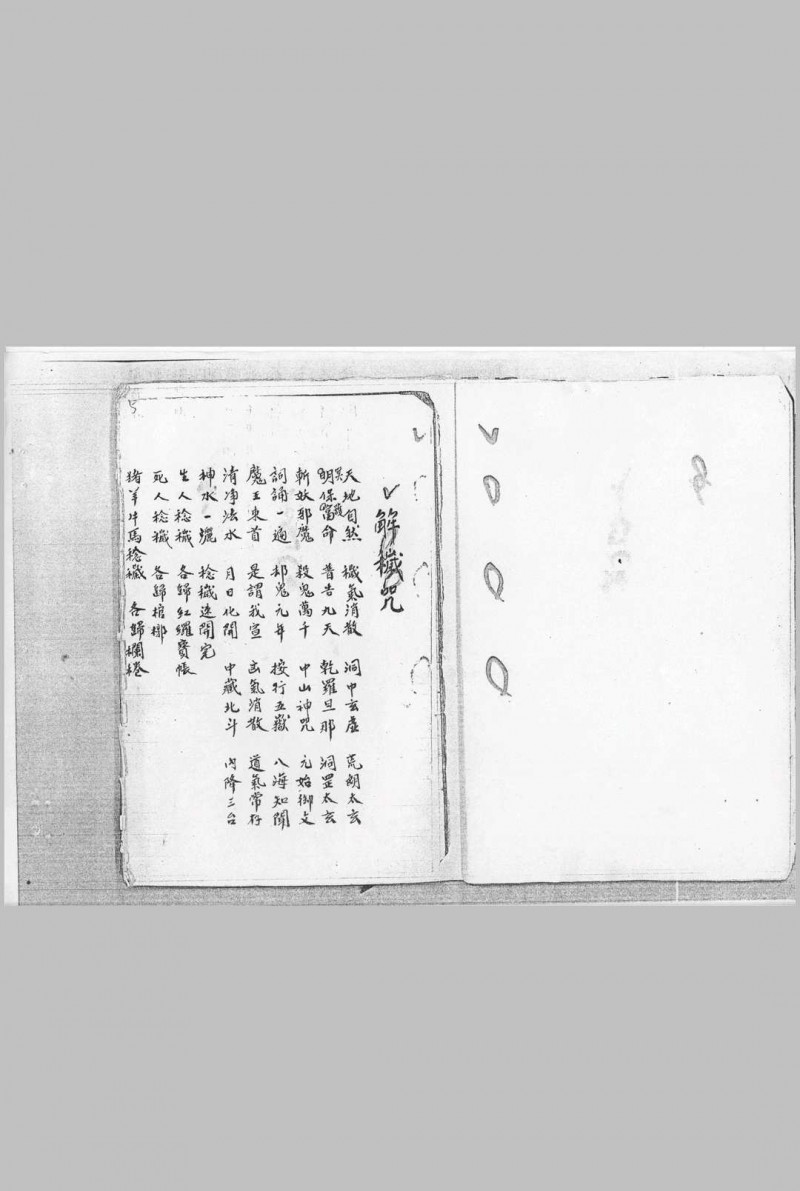 解穢咒
天地自然 穢氣消散 洞中玄虛 荒朗太玄
明保命 普告九天 乾羅旦那 洞罡太玄
斬妖邪魔 殺鬼萬千 中山神咒 元始御文
詞誦一遍 却鬼元年 按行五嶽 八海知聞
魔王束首 是謂我宣 玄氣消散 道氣常存
清净法水 月日化開 中藏北斗 內降三台
神水一灑 稔穢速開完
生人稔穢 各歸紅羅寶帳
死人稔穢 各歸棺槨
猪羊牛馬稔穢 各歸欄棬
5